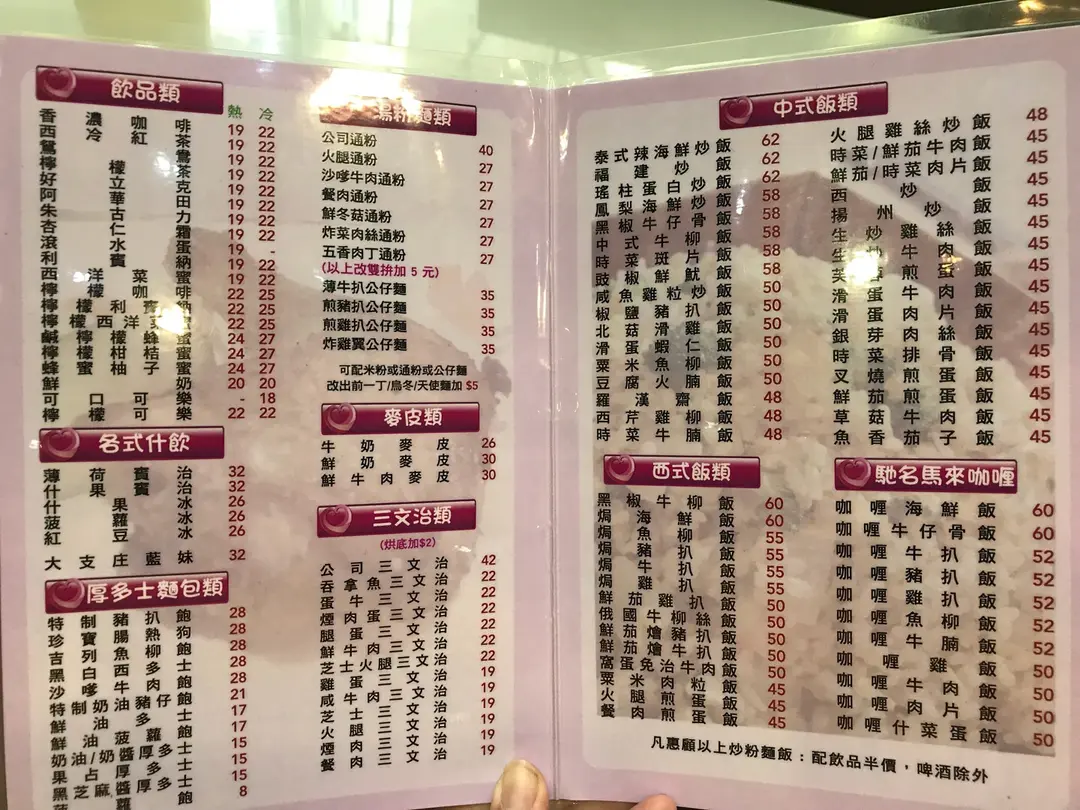 飲品類
熱 冷
香濃咖啡 19 22
西冷紅茶 19 22
鴛鴦 19 22
檸檬茶 19 22
好立克 19 22
阿華田 19 22
朱古力 19 22
杏仁霜 19 22
滾水蛋 19 -
利賓納 19 22
西洋菜蜜 19 22
檸檬咖啡 22 25
檸檬利賓納 22 25
檸檬西洋菜蜜 22 25
鹹檸檬蜂蜜 24 27
檸檬柑桔蜜 24 27
蜂蜜柚子蜜 24 27
鮮奶 20 20
可口可樂 - 18
檸檬可樂 22 22
各式什飲
薄荷賓治 32
什果賓治 32
什果冰 26
菠蘿冰 26
紅豆冰 26
大支庄藍妹 32
厚多士麵包類
特制豬扒飽 28
珍寶腸熱狗 28
吉列魚柳飽 28
黑白西多士 28
沙嗲牛肉飽 28
特制奶油豬仔飽 21
鮮油多士 17
鮮油菠蘿飽 17
奶油/奶醬厚多士 15
果占厚多士 15
黑芝麻醬厚多士 15
菠蘿飽 8
湯粉麵類
公司通粉 40
火腿通粉 27
沙嗲牛肉通粉 27
餐肉通粉 27
鮮冬菇通粉 27
炸菜肉絲通粉 27
五香肉丁通粉 27
(以上改雙拼加 5 元)
薄牛扒公仔麵 35
煎豬扒公仔麵 35
煎雞扒公仔麵 35
炸雞翼公仔麵 35
可配米粉或通粉或公仔麵
改出前一丁/烏冬/天使麵加 $5
麥皮類
牛奶麥皮 26
鮮奶麥皮 30
鮮牛肉麥皮 30
三文治類
(烘底加$2)
公司三文治 42
吞拿魚三文治 22
蛋牛三文治 22
煙肉蛋三文治 22
腿蛋三文治 22
鮮牛三文治 22
芝士火腿三文治 22
雞蛋三文治 19
咸牛肉三文治 19
芝士三文治 19
火腿三文治 19
煙肉三文治 19
餐肉三文治 19
中式飯類
泰式辣海鮮炒飯 62
福建炒飯 62
瑤柱蛋白炒飯 62
鳳梨海鮮炒飯 58
黑椒牛仔骨飯 58
中式牛柳飯 58
時菜斑片飯 58
豉椒鮮魷飯 58
咸魚雞粒炒飯 50
椒鹽豬扒飯 50
北菇滑雞飯 50
滑蛋蝦仁飯 50
粟米魚柳飯 50
豆腐火腩飯 50
羅漢齋飯 48
西芹雞柳飯 48
時菜牛腩飯 48
火腿雞絲炒飯 48
時菜/鮮茄牛肉飯 45
鮮茄/時菜肉片飯 45
西炒飯 45
揚州炒飯 45
生炒雞絲飯 45
生炒牛肉飯 45
煎蛋飯 45
滑蛋牛肉飯 45
滑蛋肉片飯 45
銀芽肉絲飯 45
時菜排骨飯 45
叉燒煎蛋飯 45
鮮茄煎蛋飯 45
草菇牛肉飯 45
魚香茄子飯 45
西式飯類
黑椒牛柳飯 60
焗海鮮飯 60
焗魚柳飯 55
焗豬扒飯 55
焗牛扒飯 55
焗雞扒飯 55
鮮茄雞扒飯 50
俄國牛柳絲飯 50
鮮茄燴豬扒飯 50
鮮茄燴牛扒飯 50
窩蛋免治牛肉飯 50
粟米肉粒飯 50
火腿煎蛋飯 45
餐肉煎蛋飯 45
馳名馬來咖喱
咖喱海鮮飯 60
咖喱牛仔骨飯 60
咖喱牛扒飯 52
咖喱豬扒飯 52
咖喱雞扒飯 52
咖喱魚柳飯 52
咖喱牛腩飯 52
咖喱雞飯 50
咖喱牛肉飯 50
咖喱肉片飯 50
咖喱什菜蛋飯 50
凡惠顧以上炒粉麵飯：配飲品半價，啤酒除外